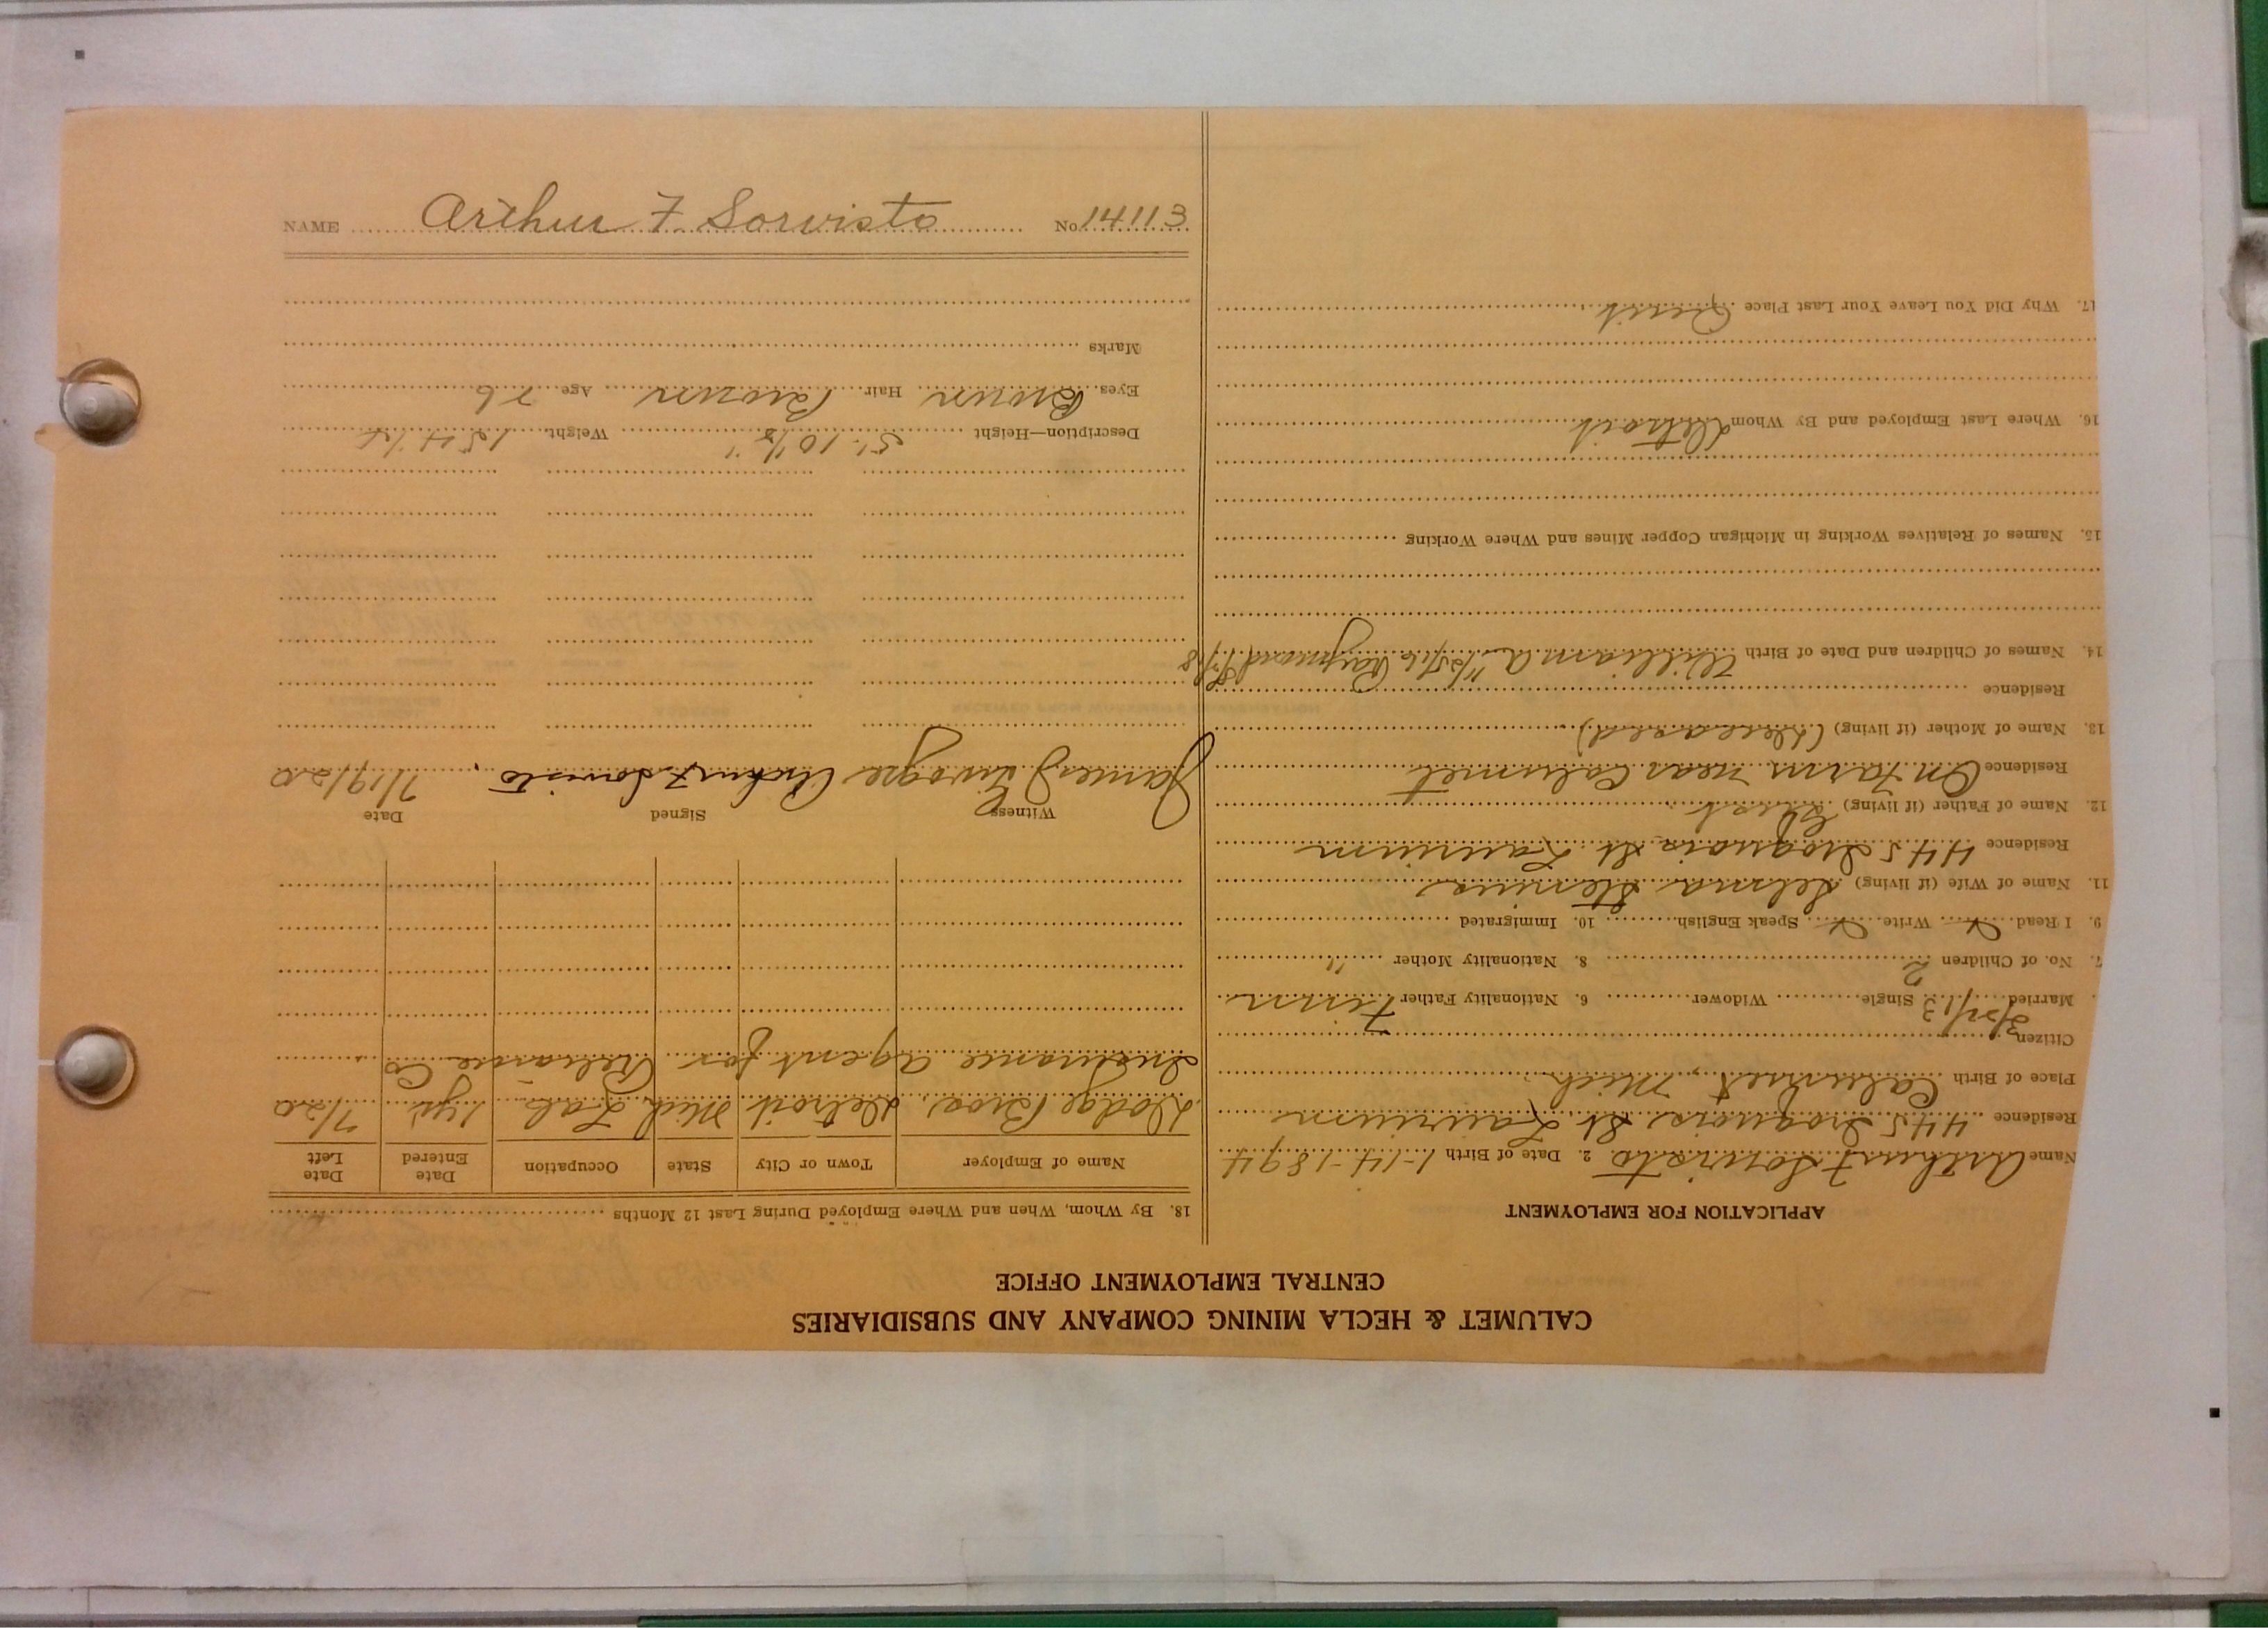 CALUMET & HECLA MINING COMPANY AND SUBSIDIARIES
CENTRAL EMPLOYMENT OFFICE
APPLICATION FOR EMPLOYMENT
Name Arthur F Sorvisto 2. Date of Birth 1-14-1894
Residence 445 Iroquois St Laurium
Place of Birth Calumet, Mich.
Citizen
Married 3/22/13 Single Widower 6. Nationality Father Finn
7. No. of Children 2 8. Nationality Mother "
9. I Read X Write X Speak English 10. Immigrated
11. Name of Wife (if living) Selma
Residence 445 Iroquois St Laurium
12. Name of Father (if living)
Residence On Farm near Calumet
13. Name of Mother (if living) (deceased)
Residence
14. Names of Children and Date of Birth William A Raymond
15. Names of Relatives Working in Michigan Copper Mines and Where Working
16. Where Last Employed and By Whom Detroit
17. Why Did You Leave Your Last Place Quit
18. By Whom, When and Where Employed During Last 12 Months
Name of Employer Town or City State Occupation Date Entered Date Left
Dodge Bros. Detroit Mich Lab. 1 yr 7/20
Insurance agent for Reliance Co
Witness Signed Date
James Arthur F Sorvisto 7/19/20
Description—Height 5'-10 1/8" Weight 154 1/2
Eyes Brown Hair Brown Age 26
Marks
NAME Arthur F Sorvisto No. 14113